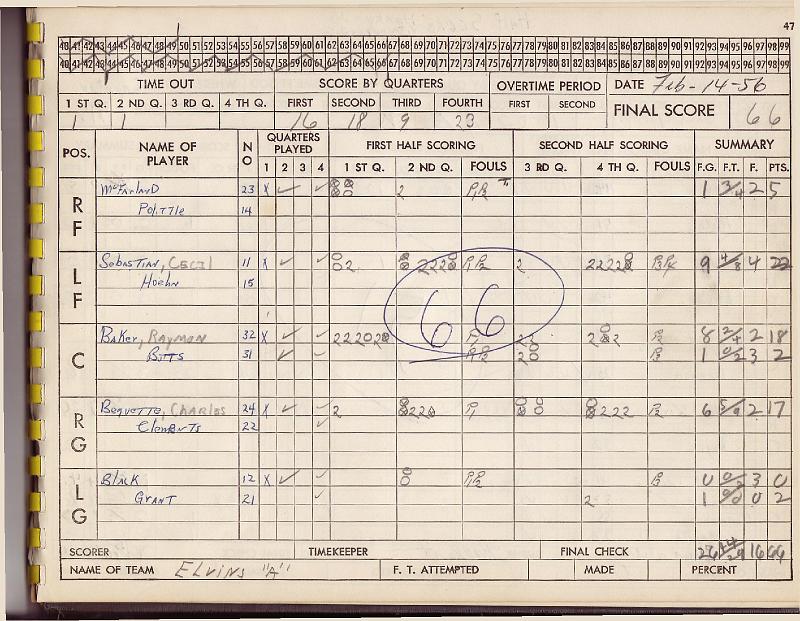 47
40 41 42 43 44 45 46 47 48 49 50 51 52 53 54 55 56 57 58 59 60 61 62 63 64 65 66 67 68 69 70 71 72 73 74 75 76 77 78 79 80 81 82 83 84 85 86 87 88 89 90 91 92 93 94 95 96 97 98 99
40 41 42 43 44 45 46 47 48 49 50 51 52 53 54 55 56 57 58 59 60 61 62 63 64 65 66 67 68 69 70 71 72 73 74 75 76 77 78 79 80 81 82 83 84 85 86 87 88 89 90 91 92 93 94 95 96 97 98 99
TIME OUT SCORE BY QUARTERS OVERTIME PERIOD DATE Feb-14-56
1 ST Q. 2 ND Q. 3 RD Q. 4 TH Q. FIRST SECOND THIRD FOURTH FIRST SECOND FINAL SCORE 66
1 1 16 18 9 23
POS. NAME OF PLAYER NO QUARTERS PLAYED FIRST HALF SCORING SECOND HALF SCORING SUMMARY
1 2 3 4 1 ST Q. 2 ND Q. FOULS 3 RD Q. 4 TH Q. FOULS F.G. F.T. F. PTS.
RF McFarland 23 X 2 P1P2 1 3/4 2 5
Polittle 14
LF Sebastian, Cecil 11 X 2 P1P2 2 9 4/8 4 22
Hoehn 15
66
C Baker, Raymon 32 X 8 2/4 2 18
Butts 31 1 0/2 3 2
RG Bequette, Charles 24 X 2 6 5/9 2 17
Clements 22
LG Black 12 X P1P2 0 0/2 3 0
Grant 21 2 1 0/0 0 2
SCORER TIMEKEEPER FINAL CHECK 26 14/29 16 66
NAME OF TEAM Elvins "A" F. T. ATTEMPTED MADE PERCENT